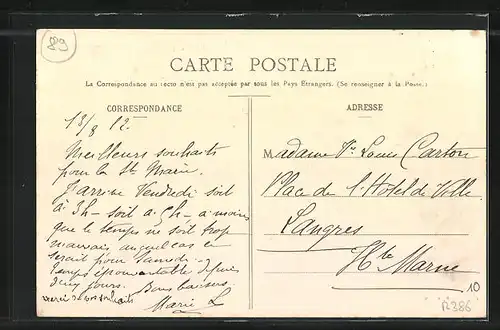 89
CARTE POSTALE
La Correspondance au recto n'est pas acceptée par tous les Pays Etrangers. (Se renseigner à la Poste.)
CORRESPONDANCE
13/8 12.
Meilleurs souhaits
pour la Ste Marie.
J'arrive Vendredi soit
à 3h - soit à 5h - à moins
que le temps ne soit trop
mauvais auquel cas ce
serait pour samedi -
Temps épouvantable depuis
deux jours. Bons baisers
merci de vos souhaits
Marie L
ADRESSE
Madame Ve Louis Carton
Place de l'Hotel de Ville
Langres
Hte Marne
10
R286